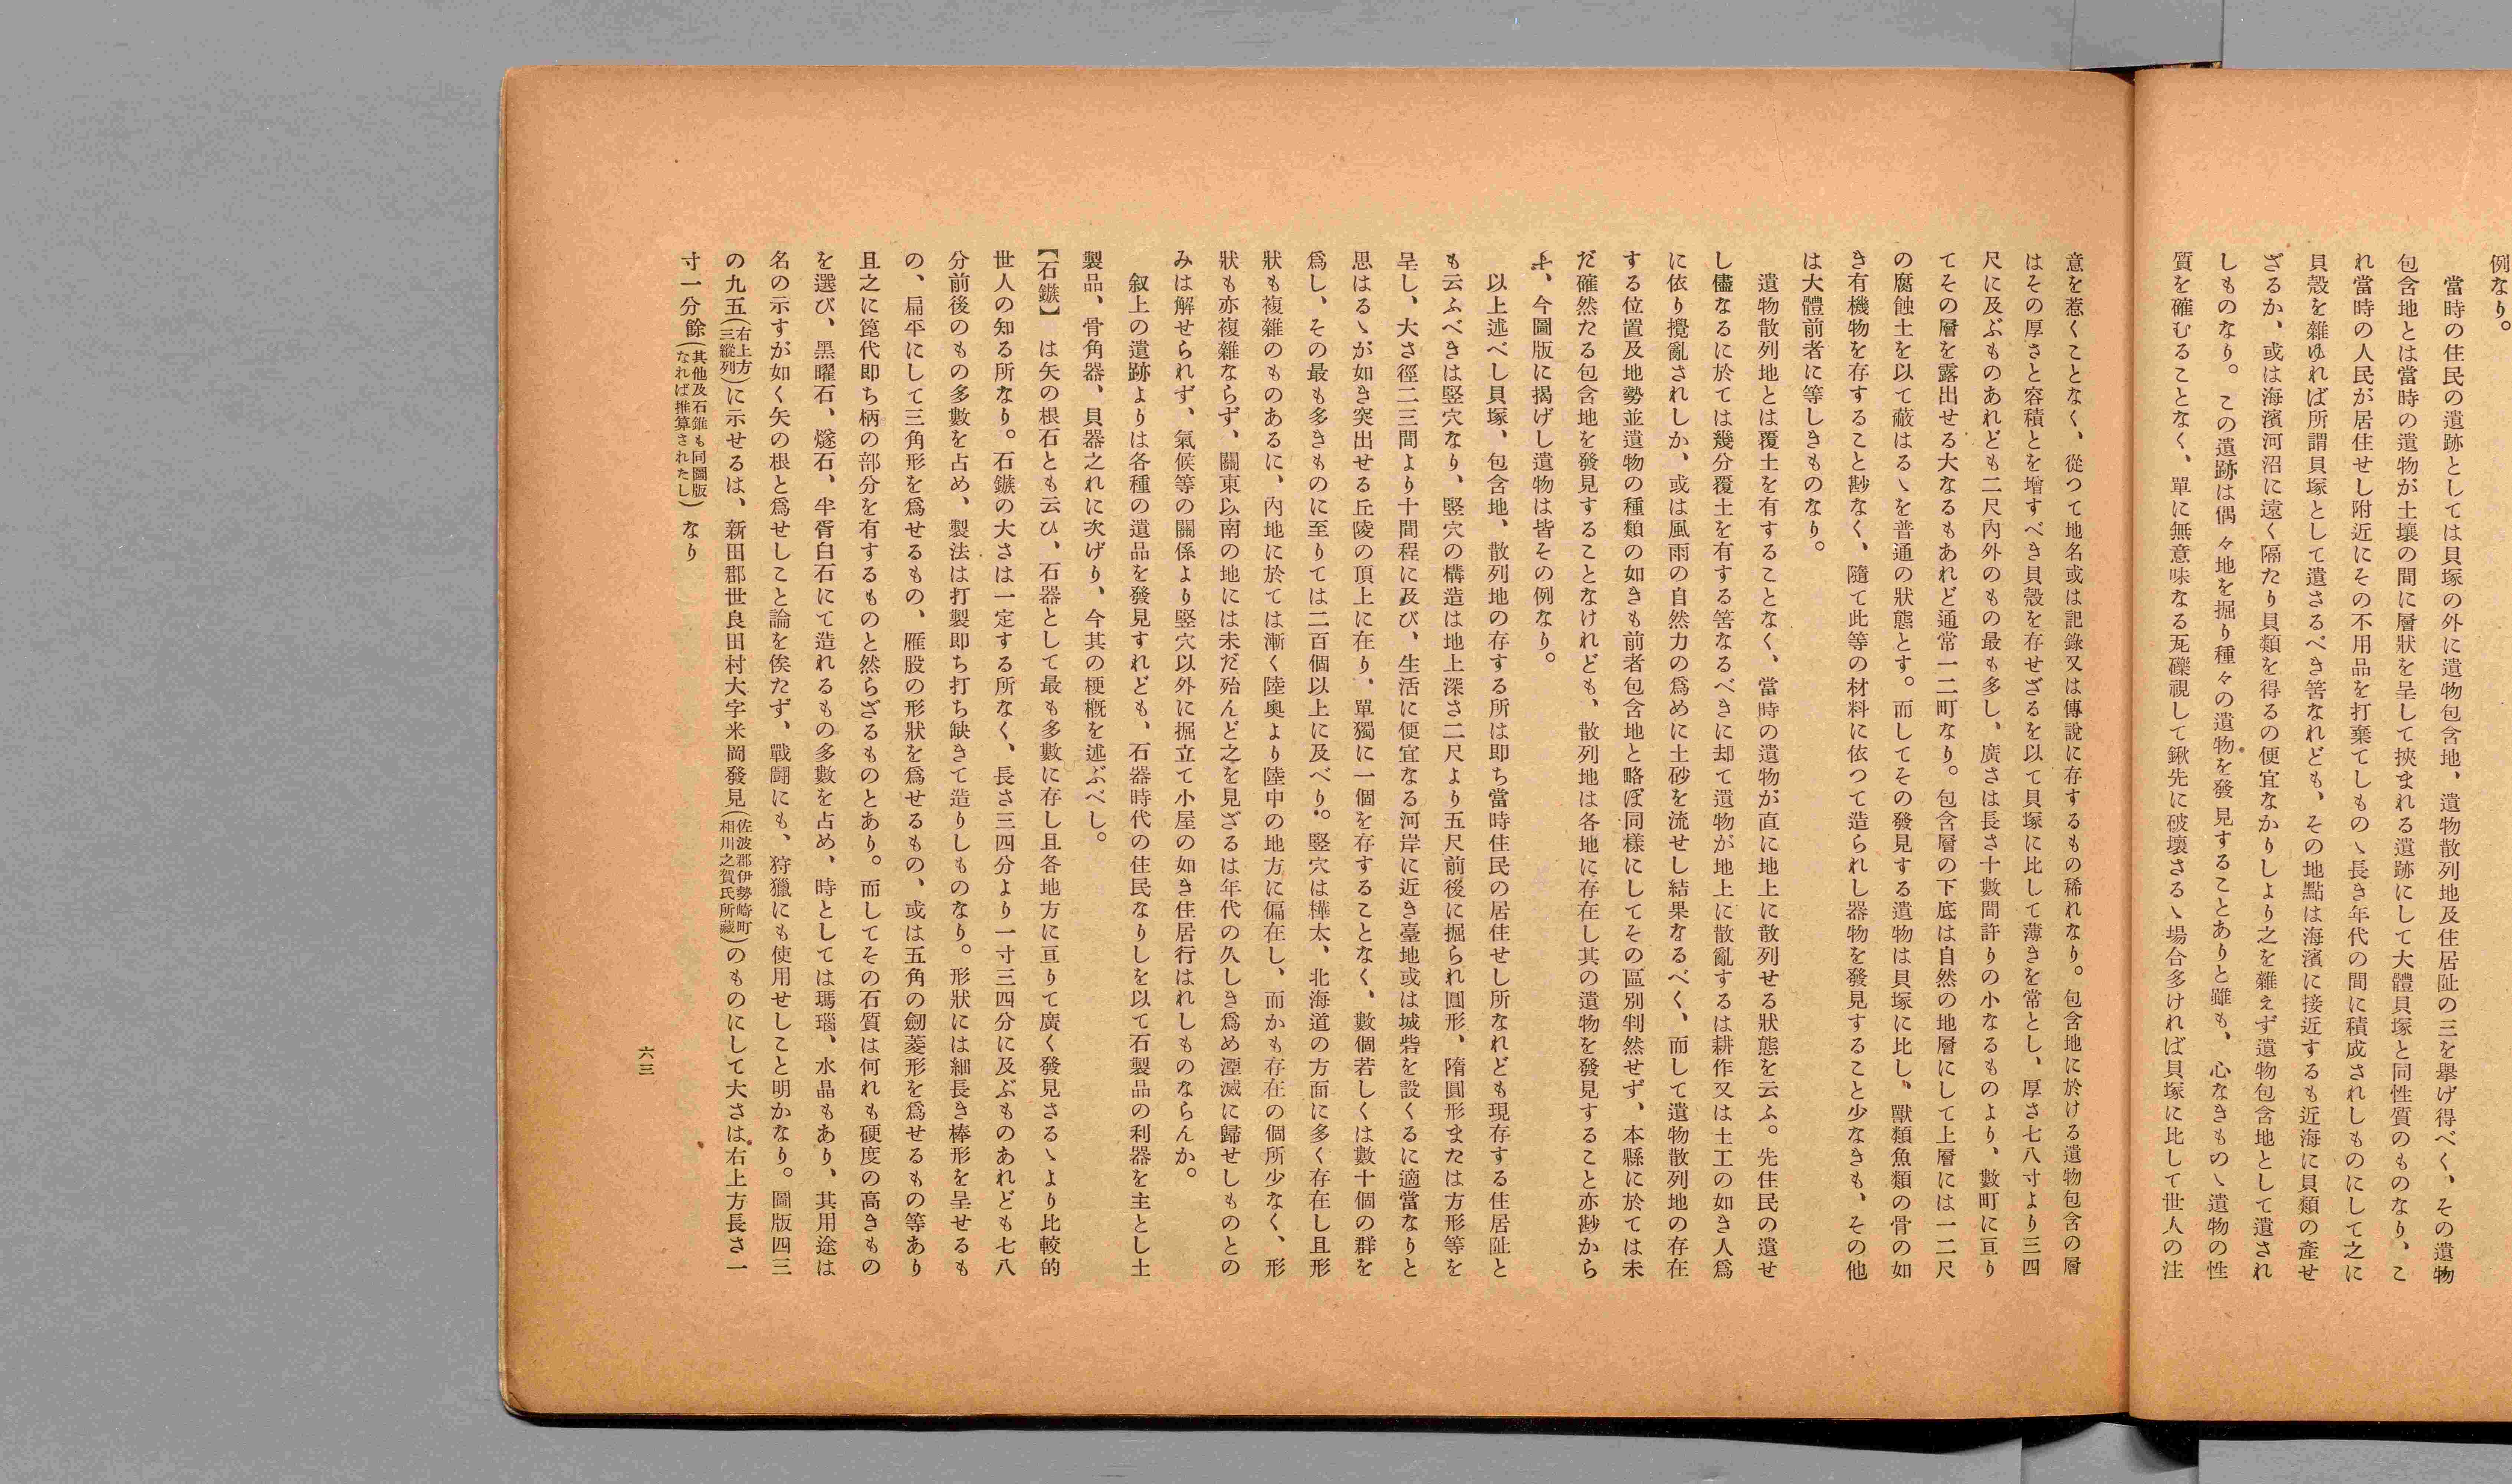 例なり。
當時の住民の遺跡としては貝塚の外に遺物包含地、遺物散列地及住居阯の三を擧げ得べく、その遺物
包含地とは當時の遺物が土壤の間に層狀を呈して挾まれる遺跡にして大體貝塚と同性質のものなり、こ
れ當時の人民が居住せし附近にその不用品を打棄てしものヽ長き年代の間に積成されしものにして之に
貝殼を雜ゆれば所謂貝塚として遺さるべき筈なれども、その地點は海濱に接近するも近海に貝類の產せ
ざるか、或は海濱河沼に遠く隔たり貝類を得るの便宜なかりしより之を雜えず遺物包含地として遺され
しものなり。この遺跡は偶々地を掘り種々の遺物を發見することありと雖も、心なきものヽ遺物の性
質を確むることなく、單に無意味なる瓦礫視して鍬先に破壞さるヽ場合多ければ貝塚に比して世人の注
意を惹くことなく、從つて地名或は記錄又は傳說に存するもの稀れなり。包含地に於ける遺物包含の層
はその厚さと容積とを增すべき貝殼を存せざるを以て貝塚に比して薄きを常とし、厚さ七八寸より三四
尺に及ぶものあれども二尺內外のもの最も多し、廣さは長さ十數間許りの小なるものより、數町に亘り
てその層を露出せる大なるもあれど通常一二町なり。包含層の下底は自然の地層にして上層には一二尺
の腐蝕土を以て蔽はるヽを普通の狀態とす。而してその發見する遺物は貝塚に比し、獸類魚類の骨の如
き有機物を存すること尠なく、隨て此等の材料に依つて造られし器物を發見すること少なきも、その他
は大體前者に等しきものなり。
遺物散列地とは覆土を有することなく、當時の遺物が直に地上に散列せる狀態を云ふ。先住民の遺せ
し儘なるに於ては幾分覆土を有する筈なるべきに却て遺物が地上に散亂するは耕作又は土工の如き人爲
に依り攪亂されしか、或は風雨の自然力の爲めに土砂を流せし結果なるべく、而して遺物散列地の存在
する位置及地勢並遺物の種類の如きも前者包含地と略ぼ同樣にしてその區別判然せず、本縣に於ては未
だ確然たる包含地を發見することなけれども、散列地は各地に存在し其の遺物を發見すること亦尠から
ず、今圖版に揭げし遺物は皆その例なり。
以上述べし貝塚、包含地、散列地の存する所は即ち當時住民の居住せし所なれども現存する住居阯と
も云ふべきは竪穴なり、竪穴の構造は地上深さ二尺より五尺前後に掘られ圓形、隋圓形または方形等を
呈し、大さ徑二三間より十間程に及び、生活に便宜なる河岸に近き臺地或は城砦を設くるに適當なりと
思はるヽが如き突出せる丘陵の頂上に在り、單獨に一個を存することなく、數個若しくは數十個の群を
爲し、その最も多きものに至りては二百個以上に及べり。竪穴は樺太、北海道の方面に多く存在し且形
狀も複雜のものあるに、內地に於ては漸く陸奧より陸中の地方に偏在し、而かも存在の個所少なく、形
狀も亦複雜ならず、關東以南の地には未だ殆んど之を見ざるは年代の久しき爲め湮滅に歸せしものとの
みは解せられず、氣候等の關係より竪穴以外に掘立て小屋の如き住居行はれしものならんか。
叙上の遺跡よりは各種の遺品を發見すれども、石器時代の住民なりしを以て石製品の利器を主とし土
製品、骨角器、貝器之れに次げり、今其の梗槪を述ぶべし。
【石鏃】は矢の根石とも云ひ、石器として最も多數に存し且各地方に亘りて廣く發見さるヽより比較的
世人の知る所なり。石鏃の大さは一定する所なく、長さ三四分より一寸三四分に及ぶものあれども七八
分前後のもの多數を占め、製法は打製即ち打ち缺きて造りしものなり。形狀には細長き棒形を呈せるも
の、扁平にして三角形を爲せるもの、雁股の形狀を爲せるもの、或は五角の劒菱形を爲せるもの等あり
且之に箆代即ち柄の部分を有するものと然らざるものとあり。而してその石質は何れも硬度の高きもの
を選び、黑曜石、燧石、半脊白石にて造れるもの多數を占め、時としては瑪瑙、水晶もあり、其用途は
名の示すが如く矢の根と爲せしこと論を俟たず、戰鬪にも、狩獵にも使用せしこと明かなり。圖版四三
の九五(右上方三縱列)に示せるは、新田郡世良田村大字米岡發見(佐波郡伊勢崎町相川之賀氏所藏)のものにして大さは右上方長さ一
寸一分餘(其他及石錐も同圖版なれば推算されたし)なり
六三